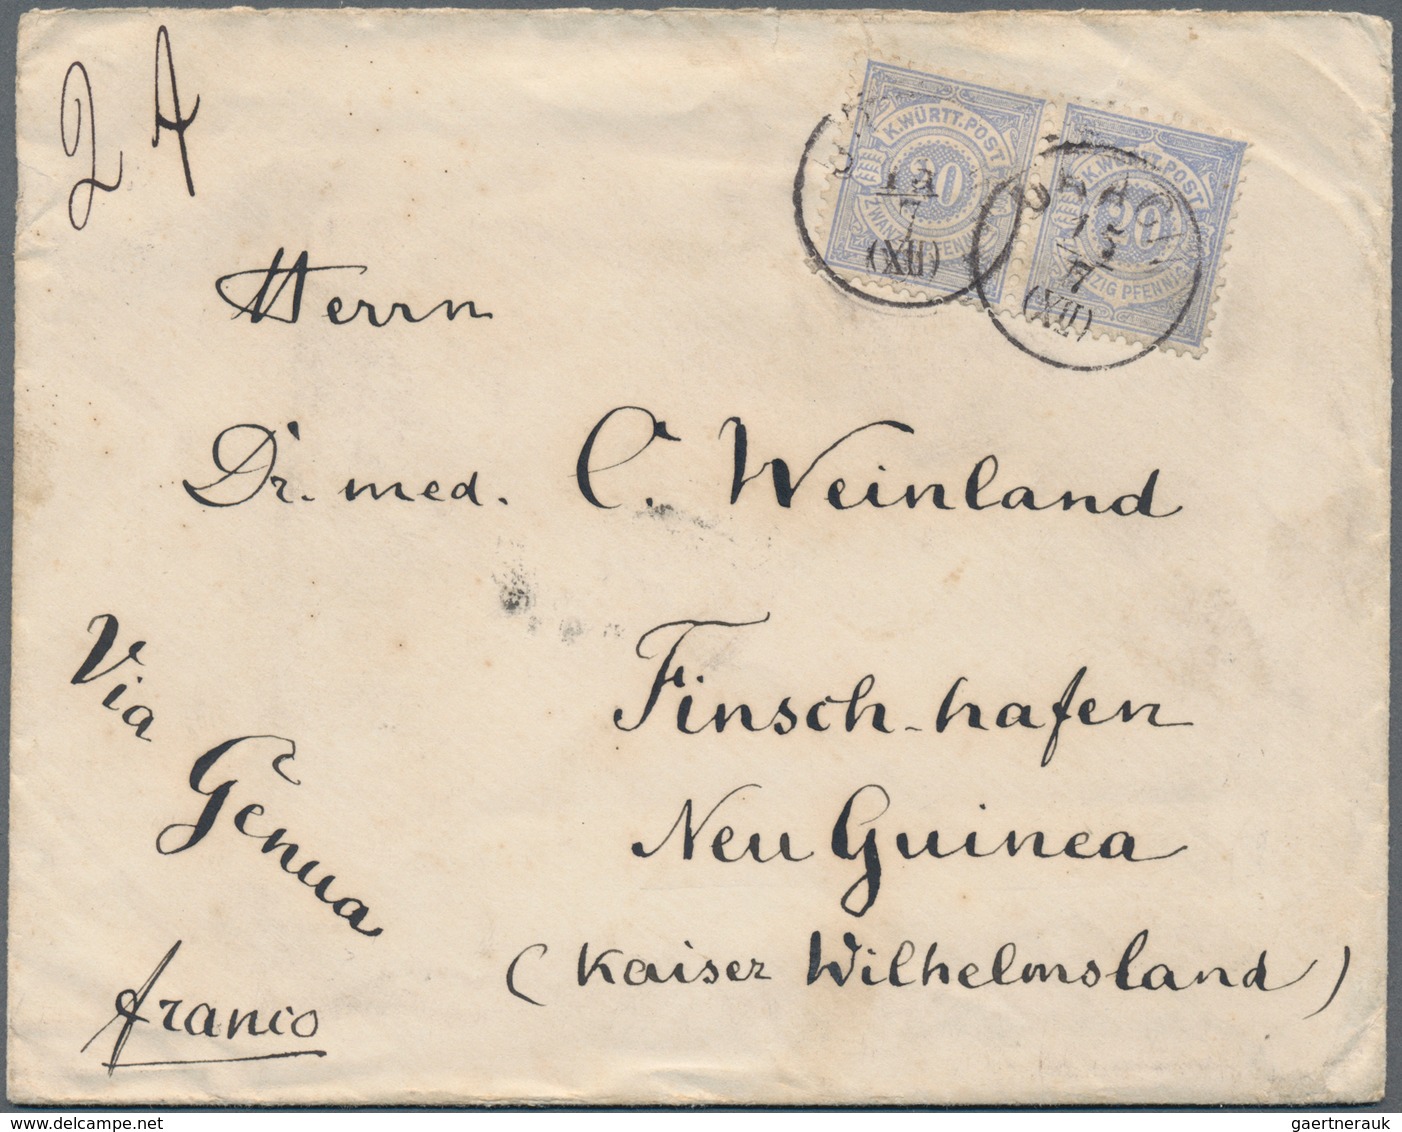 2 A
K. WÜRTT. POST
20
PFENNIG
K. WÜRTT. POST
20
PFENNIG
7
(XII)
URACH
15
7
(XII)
Herrn
Dr. med. C. Weinland
Finsch-hafen
Neu Guinea
(Kaiser Wilhelmsland)
Via
Genua
franco
gaertnerauk@delcampe.net